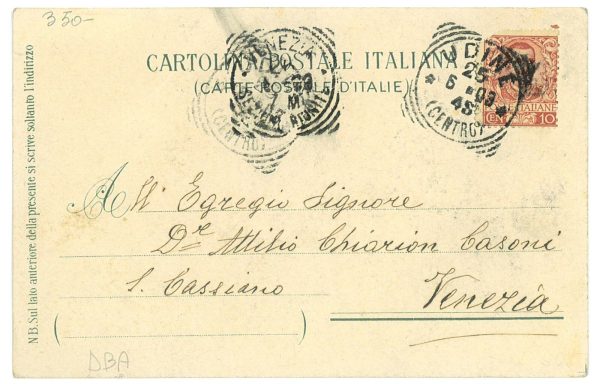 350-
CARTOLINA POSTALE ITALIANA
(CARTE POSTALE D'ITALIE)
VENEZIA
(CENTRO)
UDINE
25
6
(CENTRO)
ITALIANE
CENT 10
All' Egregio Signore
Dr Attilio Chiarion Casoni
S. Cassiano
Venezia
NB. Sul lato anteriore della presente si scrive soltanto l'indirizzo
DBA